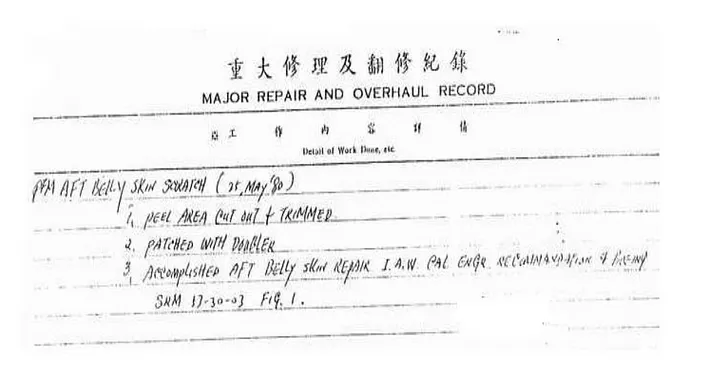 重大修理及翻修紀錄
MAJOR REPAIR AND OVERHAUL RECORD
工作內容詳情
Detail of Work Done, etc.
AFT BELLY SKIN SCRATCH (25, MAY '80)
1, PEEL AREA CUT OUT & TRIMMED
2. PATCHED WITH DOUBLER
3, ACCOMPLISHED AFT BELLY SKIN REPAIR I.A.W. CAL ENGR. RECOMMANDATION & BOEING
SRM 53-30-03 FIG. 1.